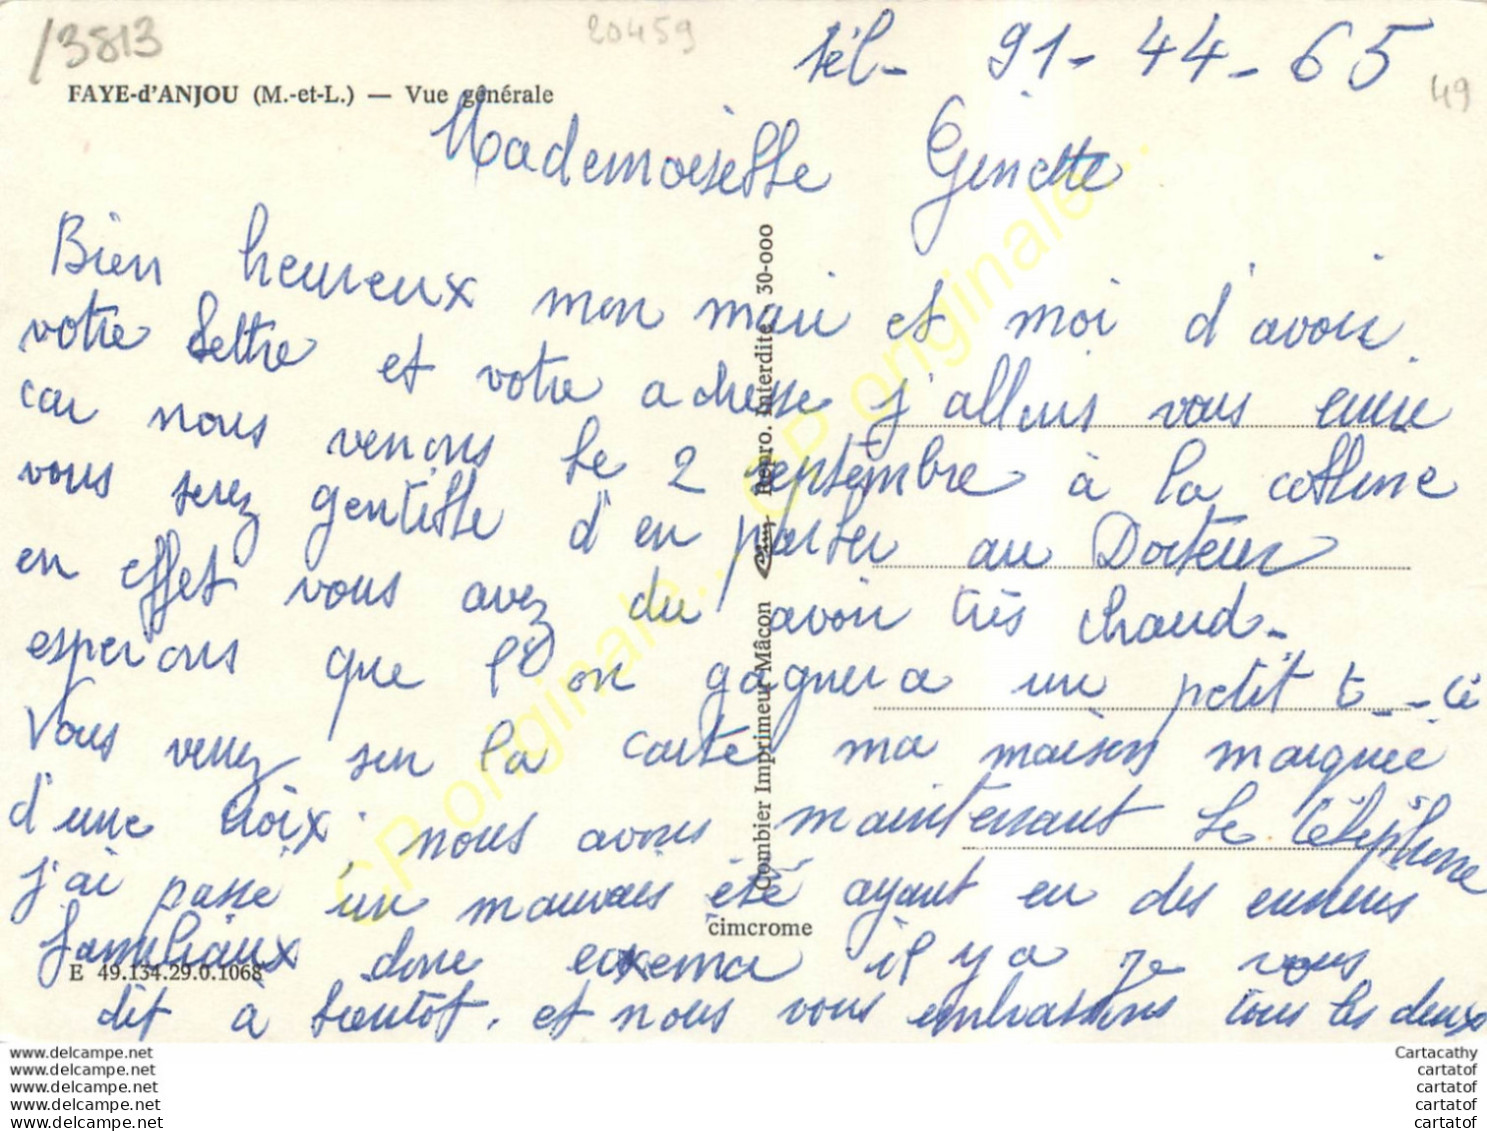 /3813
20459
tél- 91-44-65
49
FAYE-d'ANJOU (M.-et-L.) — Vue générale
Mademoiselle Ginette
Bien heureux mon mari et moi d'avoir
votre lettre et votre adresse j'allais vous ecrire
car nous venons le 2 septembre à la colline
vous serez gentille d'en parler au Docteur
en effet vous avez du avoir très chaud-
esperons que l'on gagnera un petit t--ci
Vous verrez sur la carte ma maison marquée
d'une croix, nous avons maintenant le téléphone
j'ai passé un mauvais été ayant eu des ennuis
familiaux donc exxema il y a Je vous
dit à bientôt. et nous vous embrassons tous les deux
Combier Imprimeur Mâcon Repro. Interdite 30-000
cimcrome
E 49.134.29.0.1068
CP originale... CP originale...
www.delcampe.net
www.delcampe.net
www.delcampe.net
www.delcampe.net
www.delcampe.net
Cartacathy
cartatof
cartatof
cartatof
cartatof